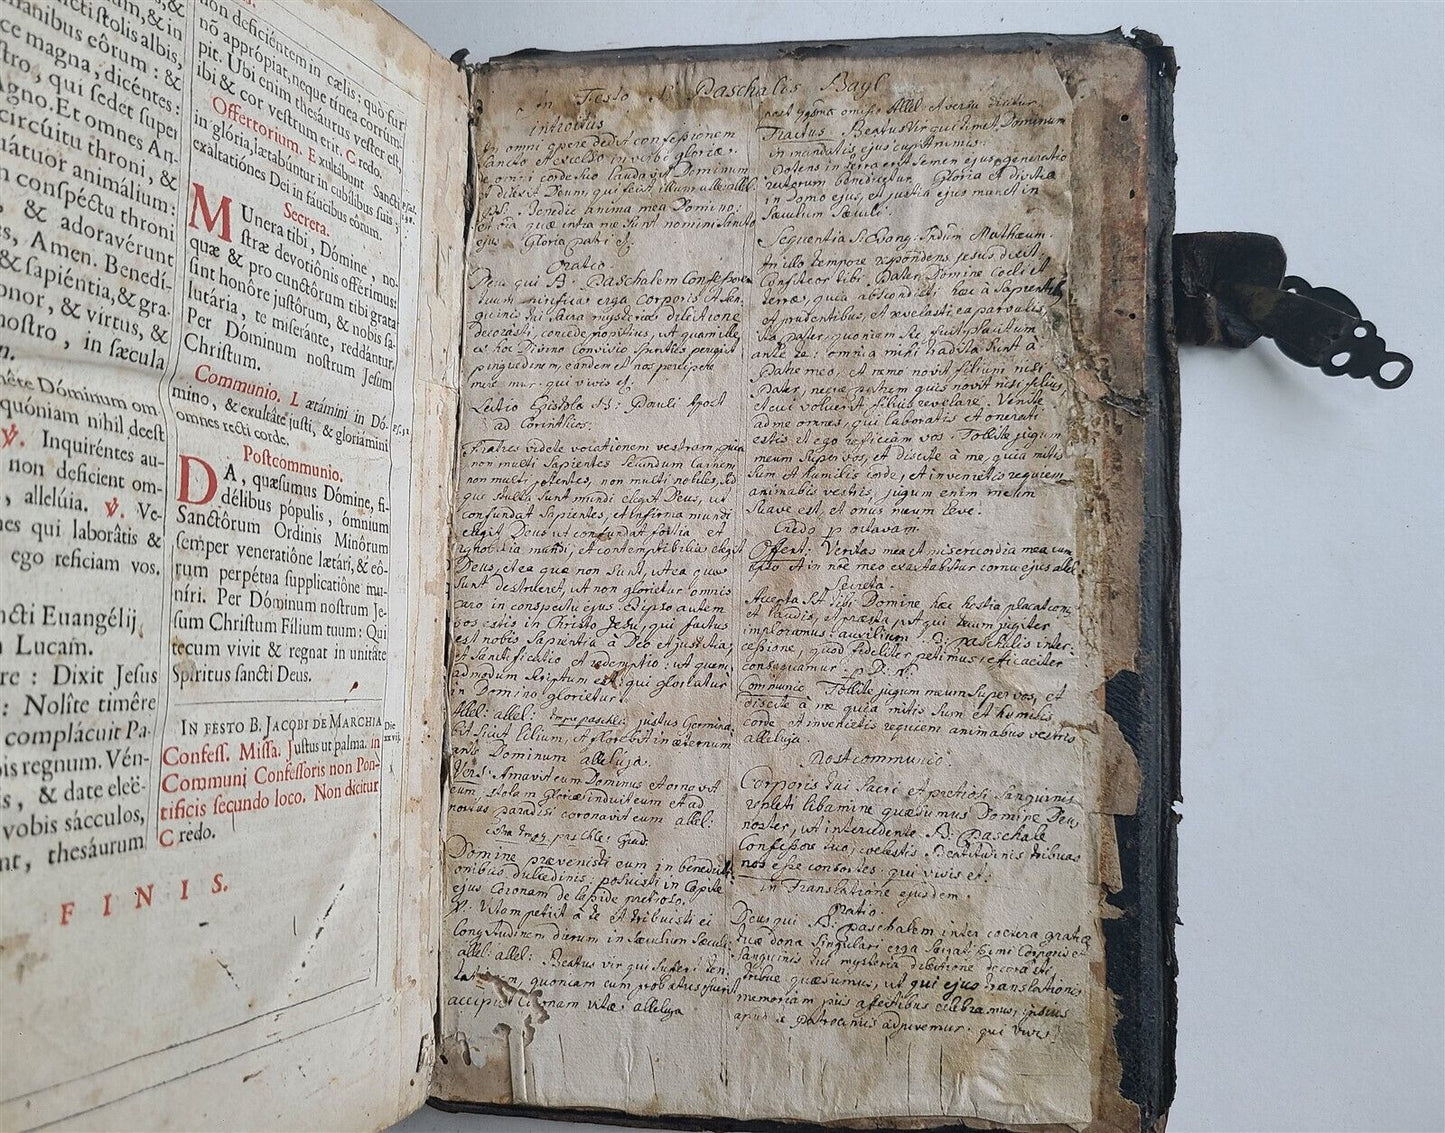 m, & in
ncti stolis albis,
manibus eôrum : &
ce magna, dicéntes :
stro, qui sedet super
Agno. Et omnes An-
circúitu throni, &
uátuor animálium :
n conspéctu throni
, & adoravérunt
es, Amen. Benedí-
& sapiéntia, & gra-
onor, & virtus, &
nostro, in sæcula
n.
ête Dóminum om-
quóniam nihil deest
℣. Inquiréntes au-
non deficient om-
, allelúia. ℣. Ve-
nes qui laborâtis &
ego reficiam vos.
ncti Euangélij
Lucam.
re : Dixit Jesus
: Nolíte timêre
complácuit Pa-
bis regnum. Vén-
is, & date eleë-
vobis sácculos,
nt, thesáurum
non deficiéntem in cælis : quò fur
nõ apprópiat, neque tínea corrúm-
pit. Ubi enim thesáurus vester est,
ibi & cor vestrum erit. Credo.
Offertorium. Exultábunt Sancti
in glória, lætabúntur in cubílibus suis ;
exaltatiónes Dei in fáucibus eórum.
Secreta.
MUnera tibi, Dómine, no-
stræ devotiônis offérimus :
quæ & pro cunctôrum tibi grata
sint honôre justôrum, & nobis sa-
lutária, te miserânte, reddántur.
Per Dóminum nostrum Jesum
Christum.
Communio. Lætámini in Dó-
mino, & exultáte justi, & gloriámini
omnes recti corde.
Postcommunio.
DA, quæsumus Dómine, fi-
délibus pópulis, ómnium
Sanctôrum Ordinis Minôrum
semper veneratiône lætári, & eô-
rum perpétua supplicatiône mu-
níri. Per Dóminum nostrum Je-
sum Christum Fílium tuum : Qui
tecum vivit & regnat in unitâte
Spíritus sancti Deus.
IN FESTO B. JACOBI DE MARCHIA
Confess. Missa. Justus ut palma. in
Communi Confessoris non Pon-
tificis secundo loco. Non dicitur
Credo.
FINIS.
in Festo S. Paschalis Bayl
introitus
In omni opere dedit confessionem
Sancto et excelso in verbo gloriæ:
de omni corde suo laudavit Dominum
et dilexit Deum, qui fecit illum
Ps. Benedic anima mea Domino:
et omnia quæ intra me sunt nomini Sancto
ejus Gloria patri
Oratio
Deus qui B: Paschalem Confessorem
tuum mirifica erga Corporis et San-
guinis tui Sacra mysteria dilectione
decorasti, concede propitius, ut quam ille
ex hoc Divino Convivio Spiritus percepit
pinguedinem, eandem et nos percipere
qui vivis et.
Lectio Epistolæ B: Pauli Apost
ad Corinthios.
Fratres videte vocationem vestram, quia
non multi Sapientes Secundum Carnem
non multi potentes, non multi nobiles, Sed
quæ stulta Sunt mundi elegit Deus, ut
confundat Sapientes, et infirma mundi
elegit Deus ut confundat fortia, et
ignobilia mundi, et contemptibilia elegit
Deus, et ea quæ non Sunt, ut ea quæ
Sunt destrueret, ut non glorietur omnis
caro in conspectu ejus. Ex ipso autem
vos estis in Christo Jesu, qui factus
est nobis Sapientia à Deo et justitia,
et Sanctificatio et redemptio : ut quem-
admodum Scriptum est: qui gloriatur
in Domino glorietur.
Allel: allel: justus Germina-
bit Sicut lilium, et florebit in æternum
ante Dominum alleluja.
Vers: Amavit eum Dominus et ornavit
eum. Stolam gloriæ induit eum et ad
portas paradisi coronavit eum allel:
Domine prævenisti eum in benedicti-
onibus dulcedinis: posuisti in Capite
ejus Coronam de lapide pretioso.
V. Vitam petijt à te et tribuisti ei
longitudinem dierum in Sæculum Sæculi
allel: allel: Beatus vir qui Suffert ten-
tationem, quoniam cum probatus fuerit
accipiet Coronam vitæ alleluja
Tractus Beatus Vir qui timet Dominum
in mandatis ejus cupit nimis.
Potens in terra erit Semen ejus, generatio
rectorum benedicetur. Gloria et divitiæ
in Domo ejus, et justitia ejus manet in
Sæculum Sæculi.
Sequentia S. Evang: Secundum Mathæum.
In illo tempore respondens Jesus dixit
Confiteor tibi Pater Domine Coeli et
terræ, quia abscondisti hæc à Sapientibus
et prudentibus, et revelasti ea parvulis,
ita pater, quoniam Sic fuit placitum
ante te: omnia mihi tradita Sunt à
Patre meo, et nemo novit filium nisi
Pater, neque patrem quis novit nisi filius,
et cui voluerit filius revelare. Venite
ad me omnes, qui laboratis et onerati
estis et ego reficiam vos. Tollite jugum
meum Super vos, et Discite à me, quia mitis
Sum et humilis corde, et invenietis requiem
animabis vestris, jugum enim meum
Suave est, et onus meum leve.
Credo per octavam.
Offert: Veritas mea et misericordia mea cum
ipso et in noe meo exaltabitur cornu ejus allel
Secreta.
Accepta Sit tibi Domine hæc hostia placationis
et laudis, et præsta, ut qui tuum jugiter
imploramus auxilium B: Paschalis inter-
cessione, quod fideliter petimus, efficaciter
consequamur. p D: N:
Communio Tollite jugum meum Super vos, et
discite à me quia mitis Sum et humilis
corde, et invenietis requiem animabus vestris
alleluja.
Postcommunio.
Corporis tui Sacri et pretiosi Sanguinis
repleti libamine quæsumus Domine Deus
noster, ut intercedente B: Paschale
Confessore tuo, coelestis Beatitudinis tribuas
nos esse consortes: qui vivis et:
in Translatione ejusdem.
Oratio.
Deus qui B: Paschalem inter cætera gratiæ
tuæ dona Singulari erga Corporis et
Sanguinis tui mysteria dilectione decorasti:
tribue quæsumus, ut qui ejus translationis
memoriam piis affectibus celebramus, ipsius
apud te Patrociniis adjuvemur: qui vivis